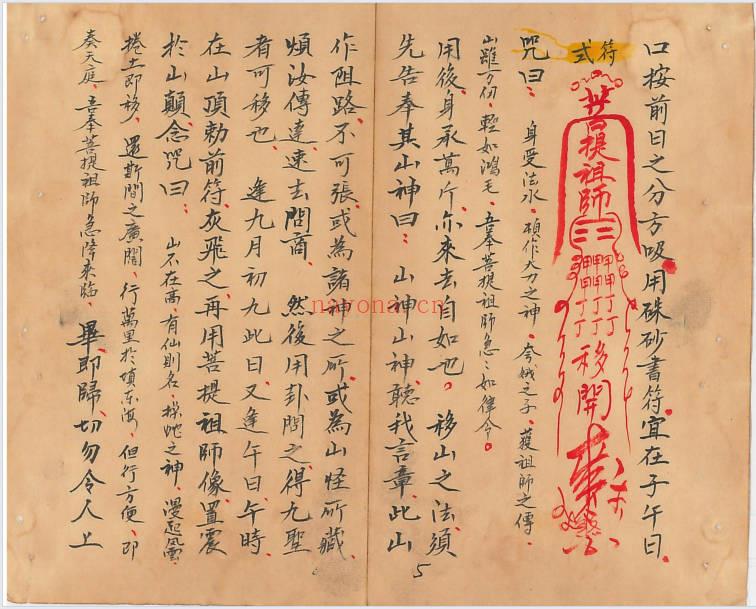 口按前日之分方吸用硃砂書符宜在子午日
符式
菩提祖師
移開
咒曰：身受法水、碩作大力之神、夸娥之子、蒙祖師之傳、
山雖万仞、輕如鴻毛、吾奉菩提祖師急〻如律令。
用後、身承萬斤、亦來去自如也。移山之法、須
先告奉其山神曰：山神山神聽我言章、此山
作阻路、不可張、或為諸神之所、或為山怪所藏、
煩汝傳達、速去問商、然後用卦問之、得九聖
者可移也、逢九月初九此日又逢午日、午時
在山頂勅前符、灰飛之、再用菩提祖師像置震
於山顛念咒曰：山不在高、有仙則名、操蛇之神、漫起風雲、
捲土即移、還斯間之廣闊、行萬里於填東海、但行方便、即
奏天庭、吾奉菩提祖師急降來臨、畢即歸、切勿令人上
5
nayona.cn